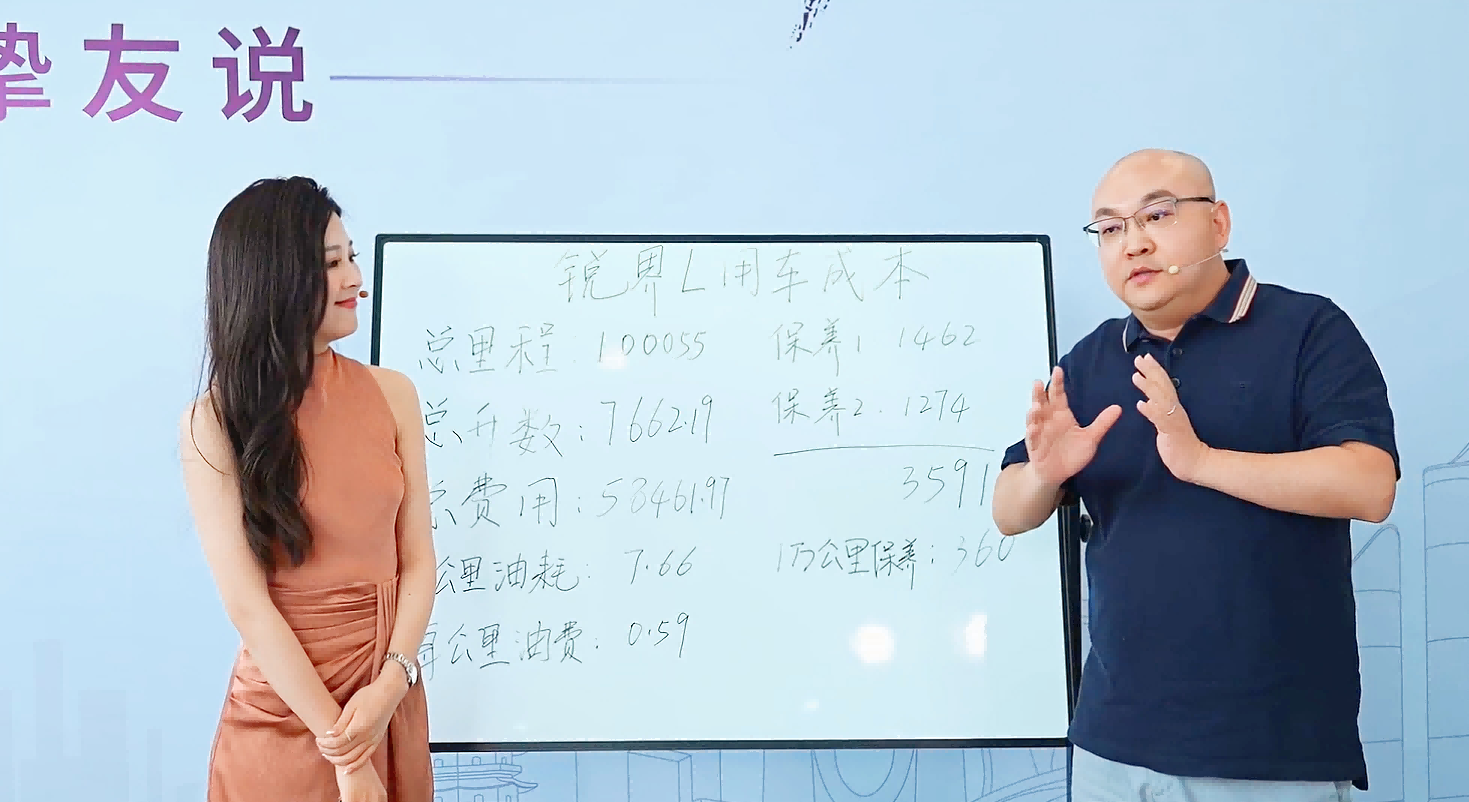 挚友说
锐界L用车成本
总里程：100055
总升数：7662.19
总费用：58461.97
公里油耗：7.66
每公里油费：0.59
保养1 1462
保养2.1274
3591
1万公里保养：360